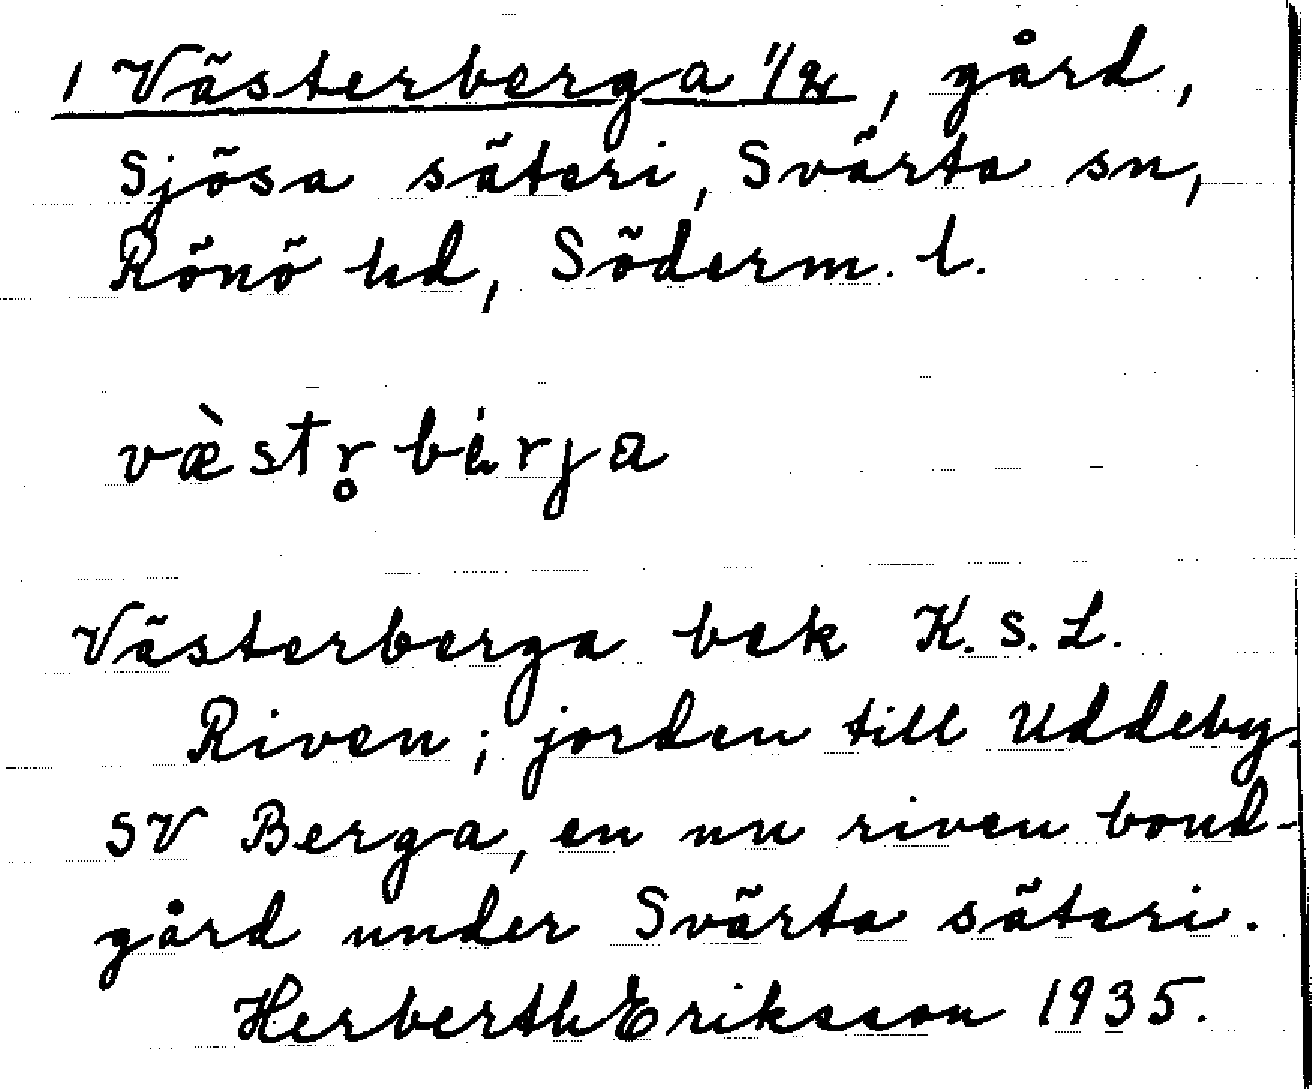 1 Västerberga 1/2, gård,
Sjösa säteri, Svärta sn,
Rönö hd, Söderm. l.
væ̀str̥bærja
Västerberga bek K. S. L.
Riven; jorden till Uddeby.
SV Berga, en nu riven bond-
gård under Svärta säteri.
Herberth Eriksson 1935.